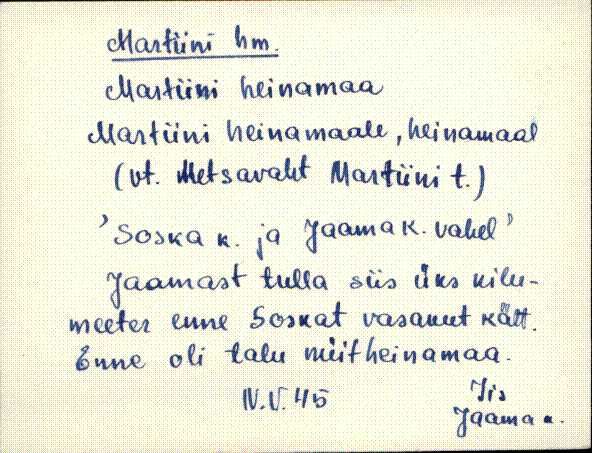 Martiini hm.
Martiini heinamaa
Martiini heinamaale, heinamaal
(vt. Metsavaht Martiini t.)
'Soska k. ja Jaama k. vahel'
Jaamast tulla siis üks kilu-
meeter enne Soskat vasakut kätt.
Enne oli talu nüit heinamaa.
IV. V. 45
Iis
Jaama k.